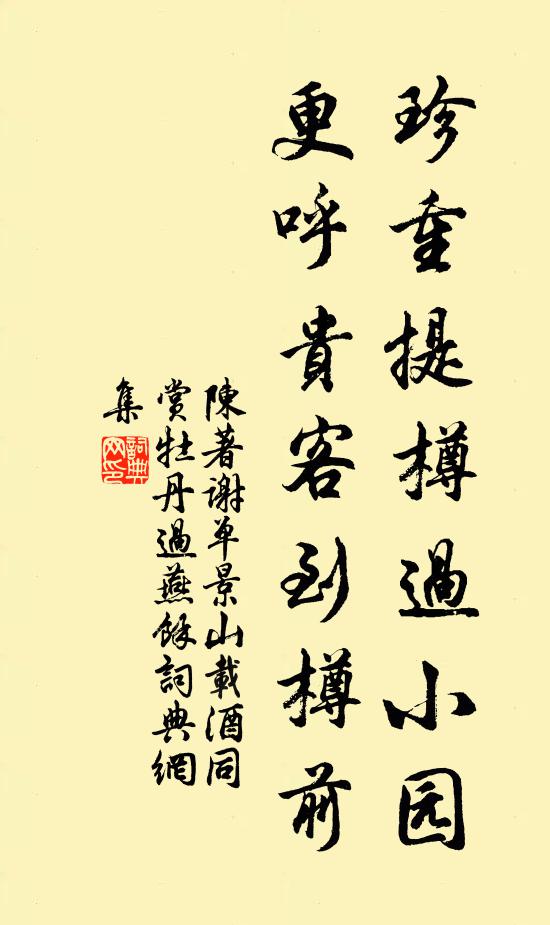 珍重提樽過小园
更呼貴客到樽前
陳著謝单景山載酒同
賞牡丹過燕餘詞典網
集
詞典
网印